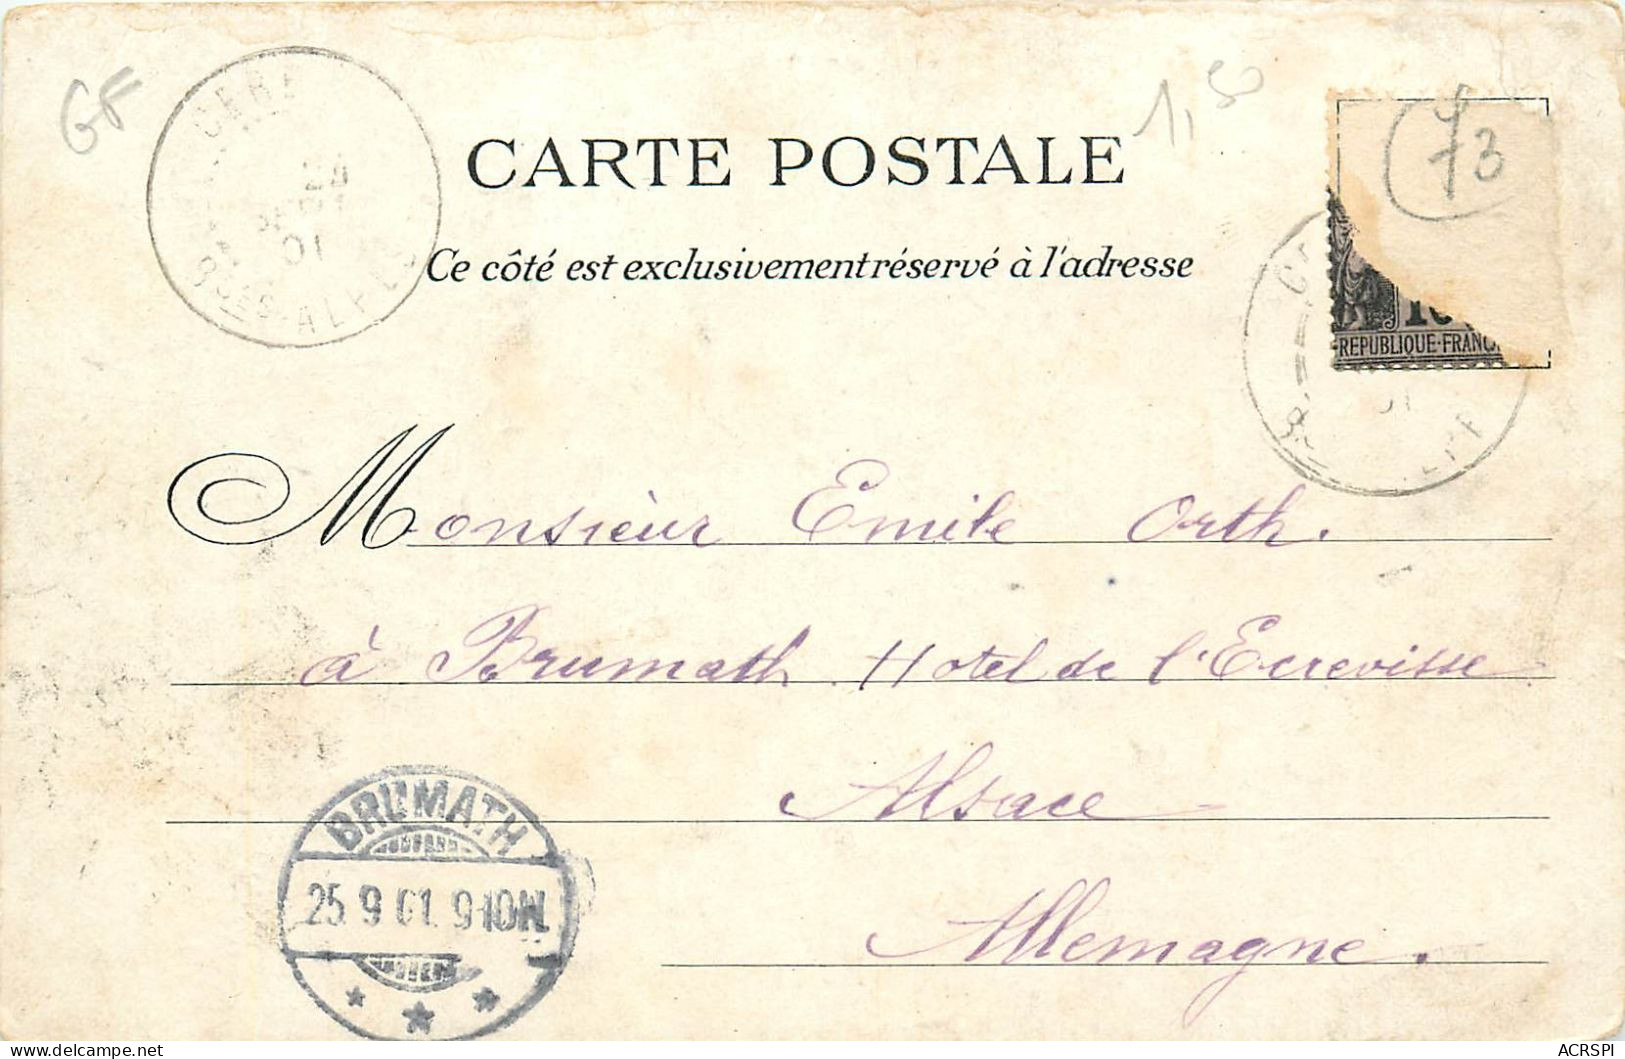 GF
1,50
73
CARTE POSTALE
Ce côté est exclusivement réservé à l'adresse
01
Bses ALPES
REPUBLIQUE FRANC
Monsieur Emile Orth.
à Brumath Hotel de l'Ecrevisse
Alsace
Allemagne.
BRUMATH
25 9 01 9-10N.
delcampe.net
ACRSPI